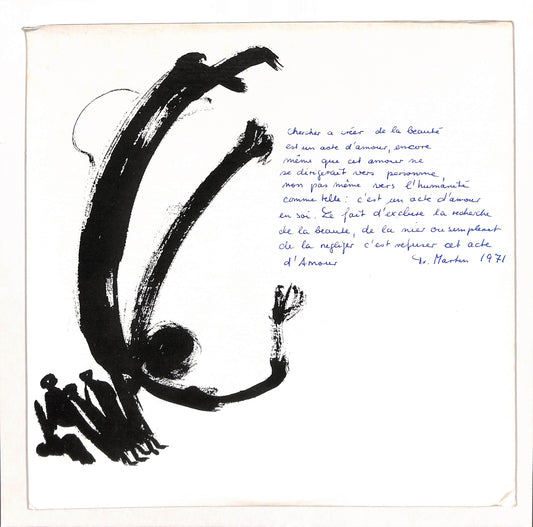 Chercher a créer de la beauté
est un acte d'amour, encore
même que cet amour ne
se dirigerait vers personne,
non pas même vers l'humanité
comme telle: c'est un acte d'amour
en soi. Le fait d'exclure la recherche
de la beauté, de la nier ou simplement
de la négliger c'est refuser cet acte
d'Amour
Fr. Martin 1971